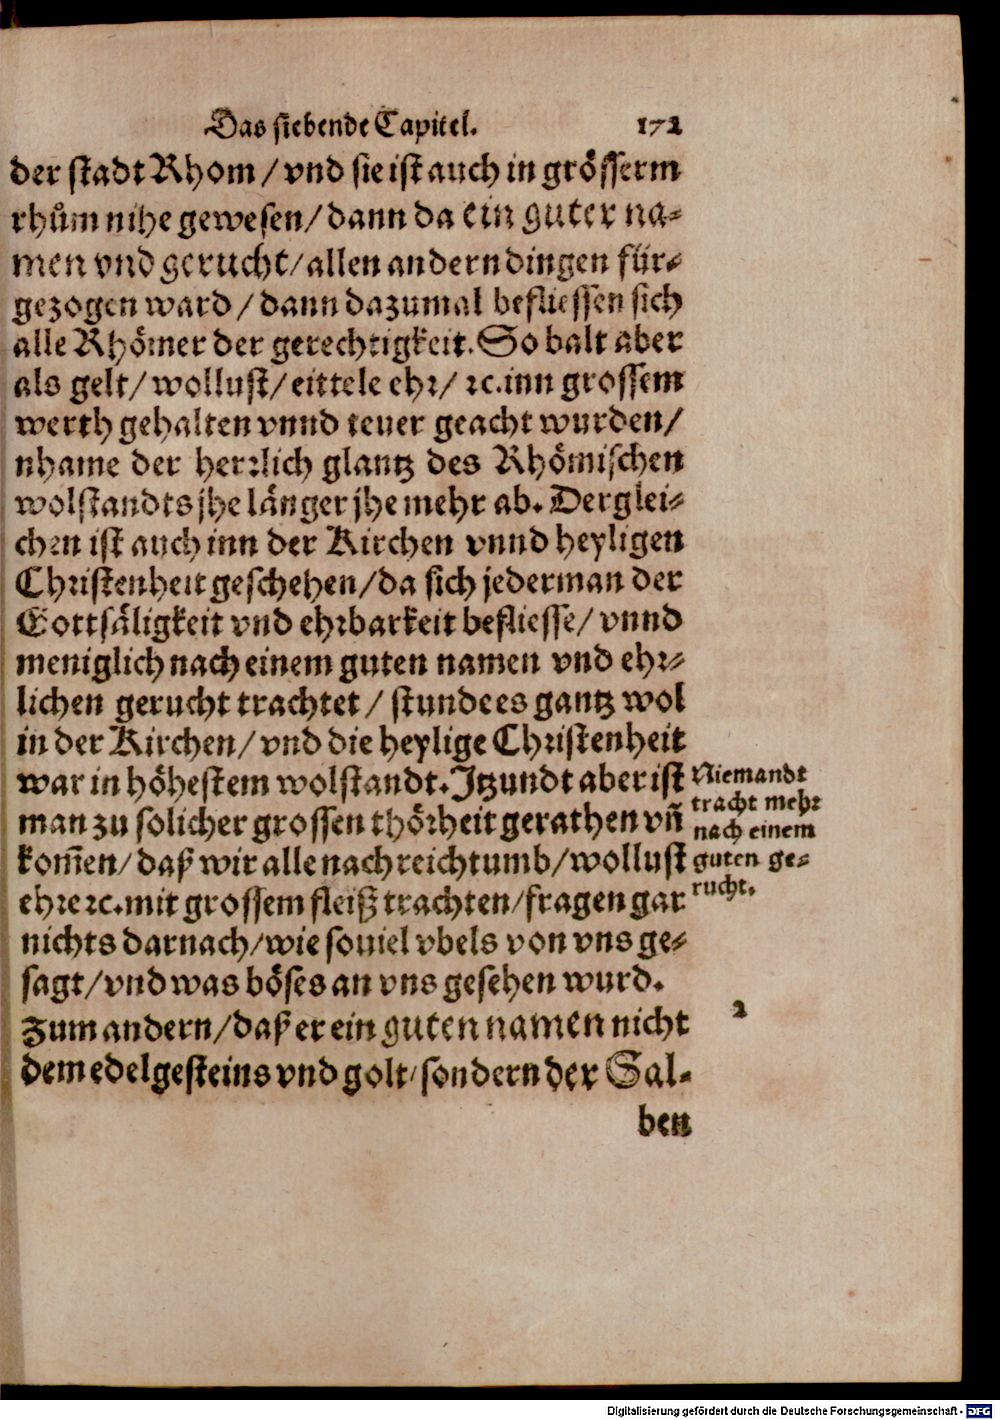 Das siebende Capitel. 172
der stadt Rhom / vnd sie ist auch in grösserm
rhům nihe gewesen / dann da ein guter na-
men vnd gerucht / allen andern dingen für-
gezogen ward / dann dazumal befliessen sich
alle Rhömer der gerechtigkeit. So balt aber
als gelt / wollust / eittele ehr / ꝛc. inn grossem
werth gehalten vnnd teuer geacht wurden /
nhame der herꝛlich glantz des Rhömischen
wolstandts jhe länger jhe mehr ab. Derglei-
chen ist auch inn der Kirchen vnnd heyligen
Christenheit geschehen / da sich jederman der
Gottsäligkeit vnd ehrbarkeit befliesse / vnnd
meniglich nach einem guten namen vnd ehr-
lichen gerucht trachtet / stunde es gantz wol
in der Kirchen / vnd die heylige Christenheit
war in höhestem wolstandt. Jtzundt aber ist
man zu solicher grossen thörheit gerathen vn̄
kom̄en / daß wir alle nach reichtumb / wollust
ehre ꝛc. mit grossem fleiß trachten / fragen gar
nichts darnach / wie souiel vbels von vns ge-
sagt / vnd was böses an vns gesehen wurd.
Zum andern / daß er ein guten namen nicht
dem edelgesteins vnd golt / sondern der Sal-
ben
Niemandt
tracht mehr
nach einem
guten ge-
rucht.
2
Digitalisierung gefördert durch die Deutsche Forschungsgemeinschaft - DFG